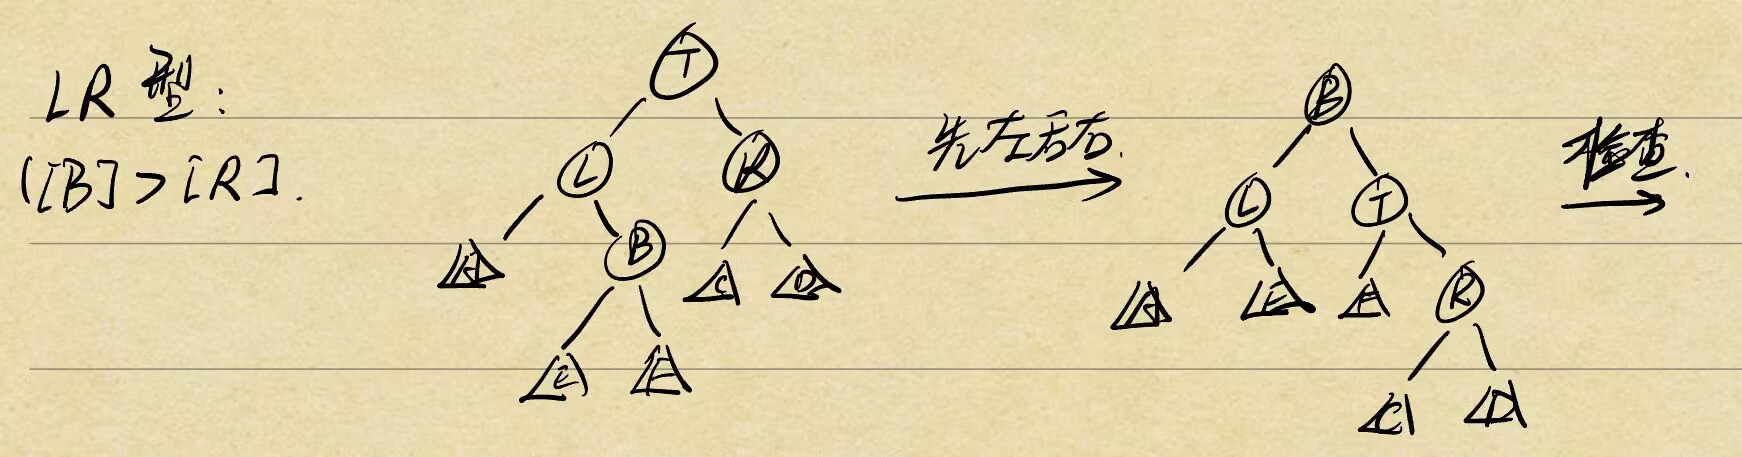 LR 型:
([B]>[R].
T
L
R
A
B
C
D
E
F
先左后右.
B
L
T
A
E
F
R
C
D
检查.